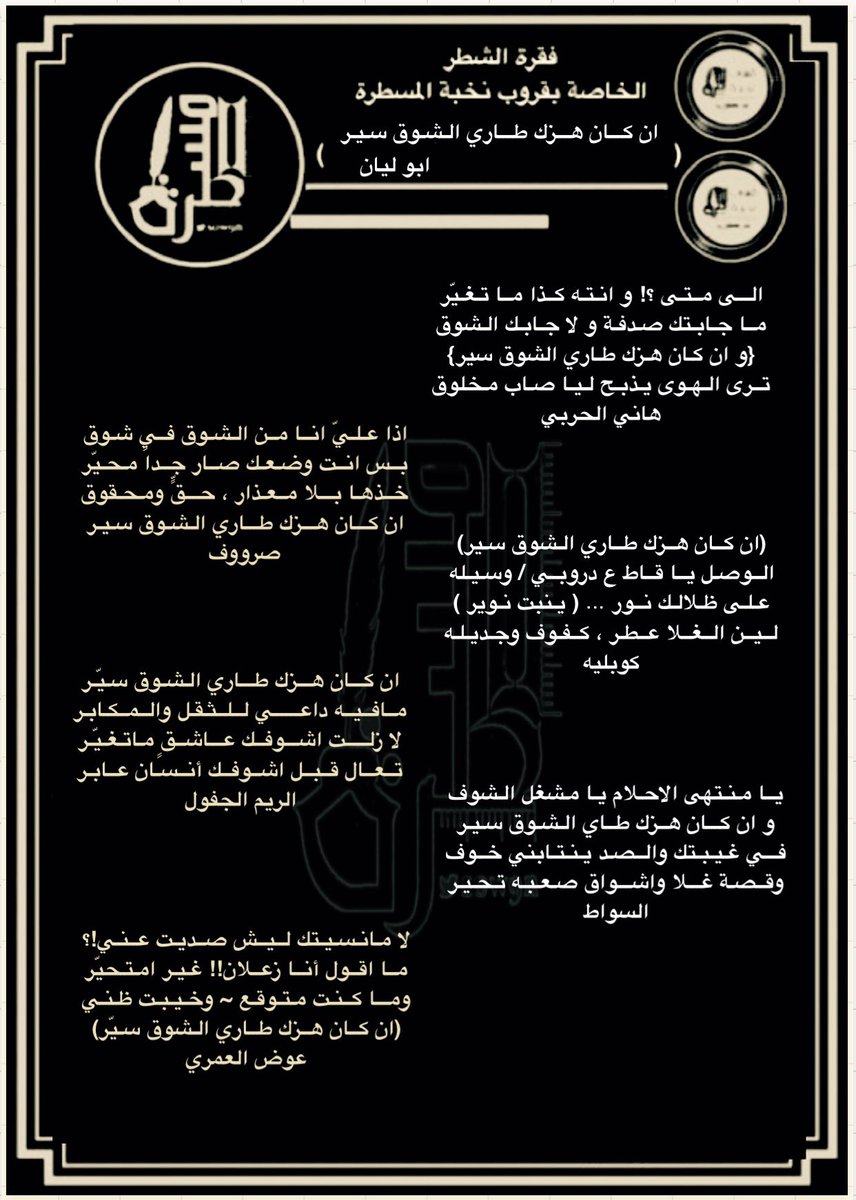 فقرة الشطر
الخاصة بقروب نخبة المسطرة
( ان كان هزك طاري الشوق سير )
ابو ليان
المسطرة
الى متى ؟! و انته كذا ما تغيّر
ما جابتك صدفة و لا جابك الشوق
{و ان كان هزك طاري الشوق سير}
ترى الهوى يذبح ليا صاب مخلوق
هاني الحربي
اذا عليّ انا من الشوق في شوق
بس انت وضعك صار جداً محيّر
خذها بلا معذار ، حقٍّ ومحقوق
ان كان هزك طاري الشوق سير
صرووف
(ان كان هزك طاري الشوق سير)
الوصل يا قاط ع دروبي / وسيله
على ظلالك نور ... ( ينبت نوير )
لين الغلا عطر ، كفوف وجديله
كوبليه
ان كان هزك طاري الشوق سيّر
مافيه داعي للثقل والمكابر
لا زلت اشوفك عاشقٍ ماتغيّر
تعال قبل اشوفك أنسان عابر
الريم الجفول
يا منتهى الاحلام يا مشغل الشوف
و ان كان هزك طاي الشوق سير
في غيبتك والصد ينتابني خوف
وقصة غلا واشواق صعبه تحير
السواط
لا مانسيتك ليش صديت عني!؟
ما اقول أنا زعلان!! غير امتحيّر
وما كنت متوقع ~ وخيبت ظني
(ان كان هزك طاري الشوق سيّر)
عوض العمري